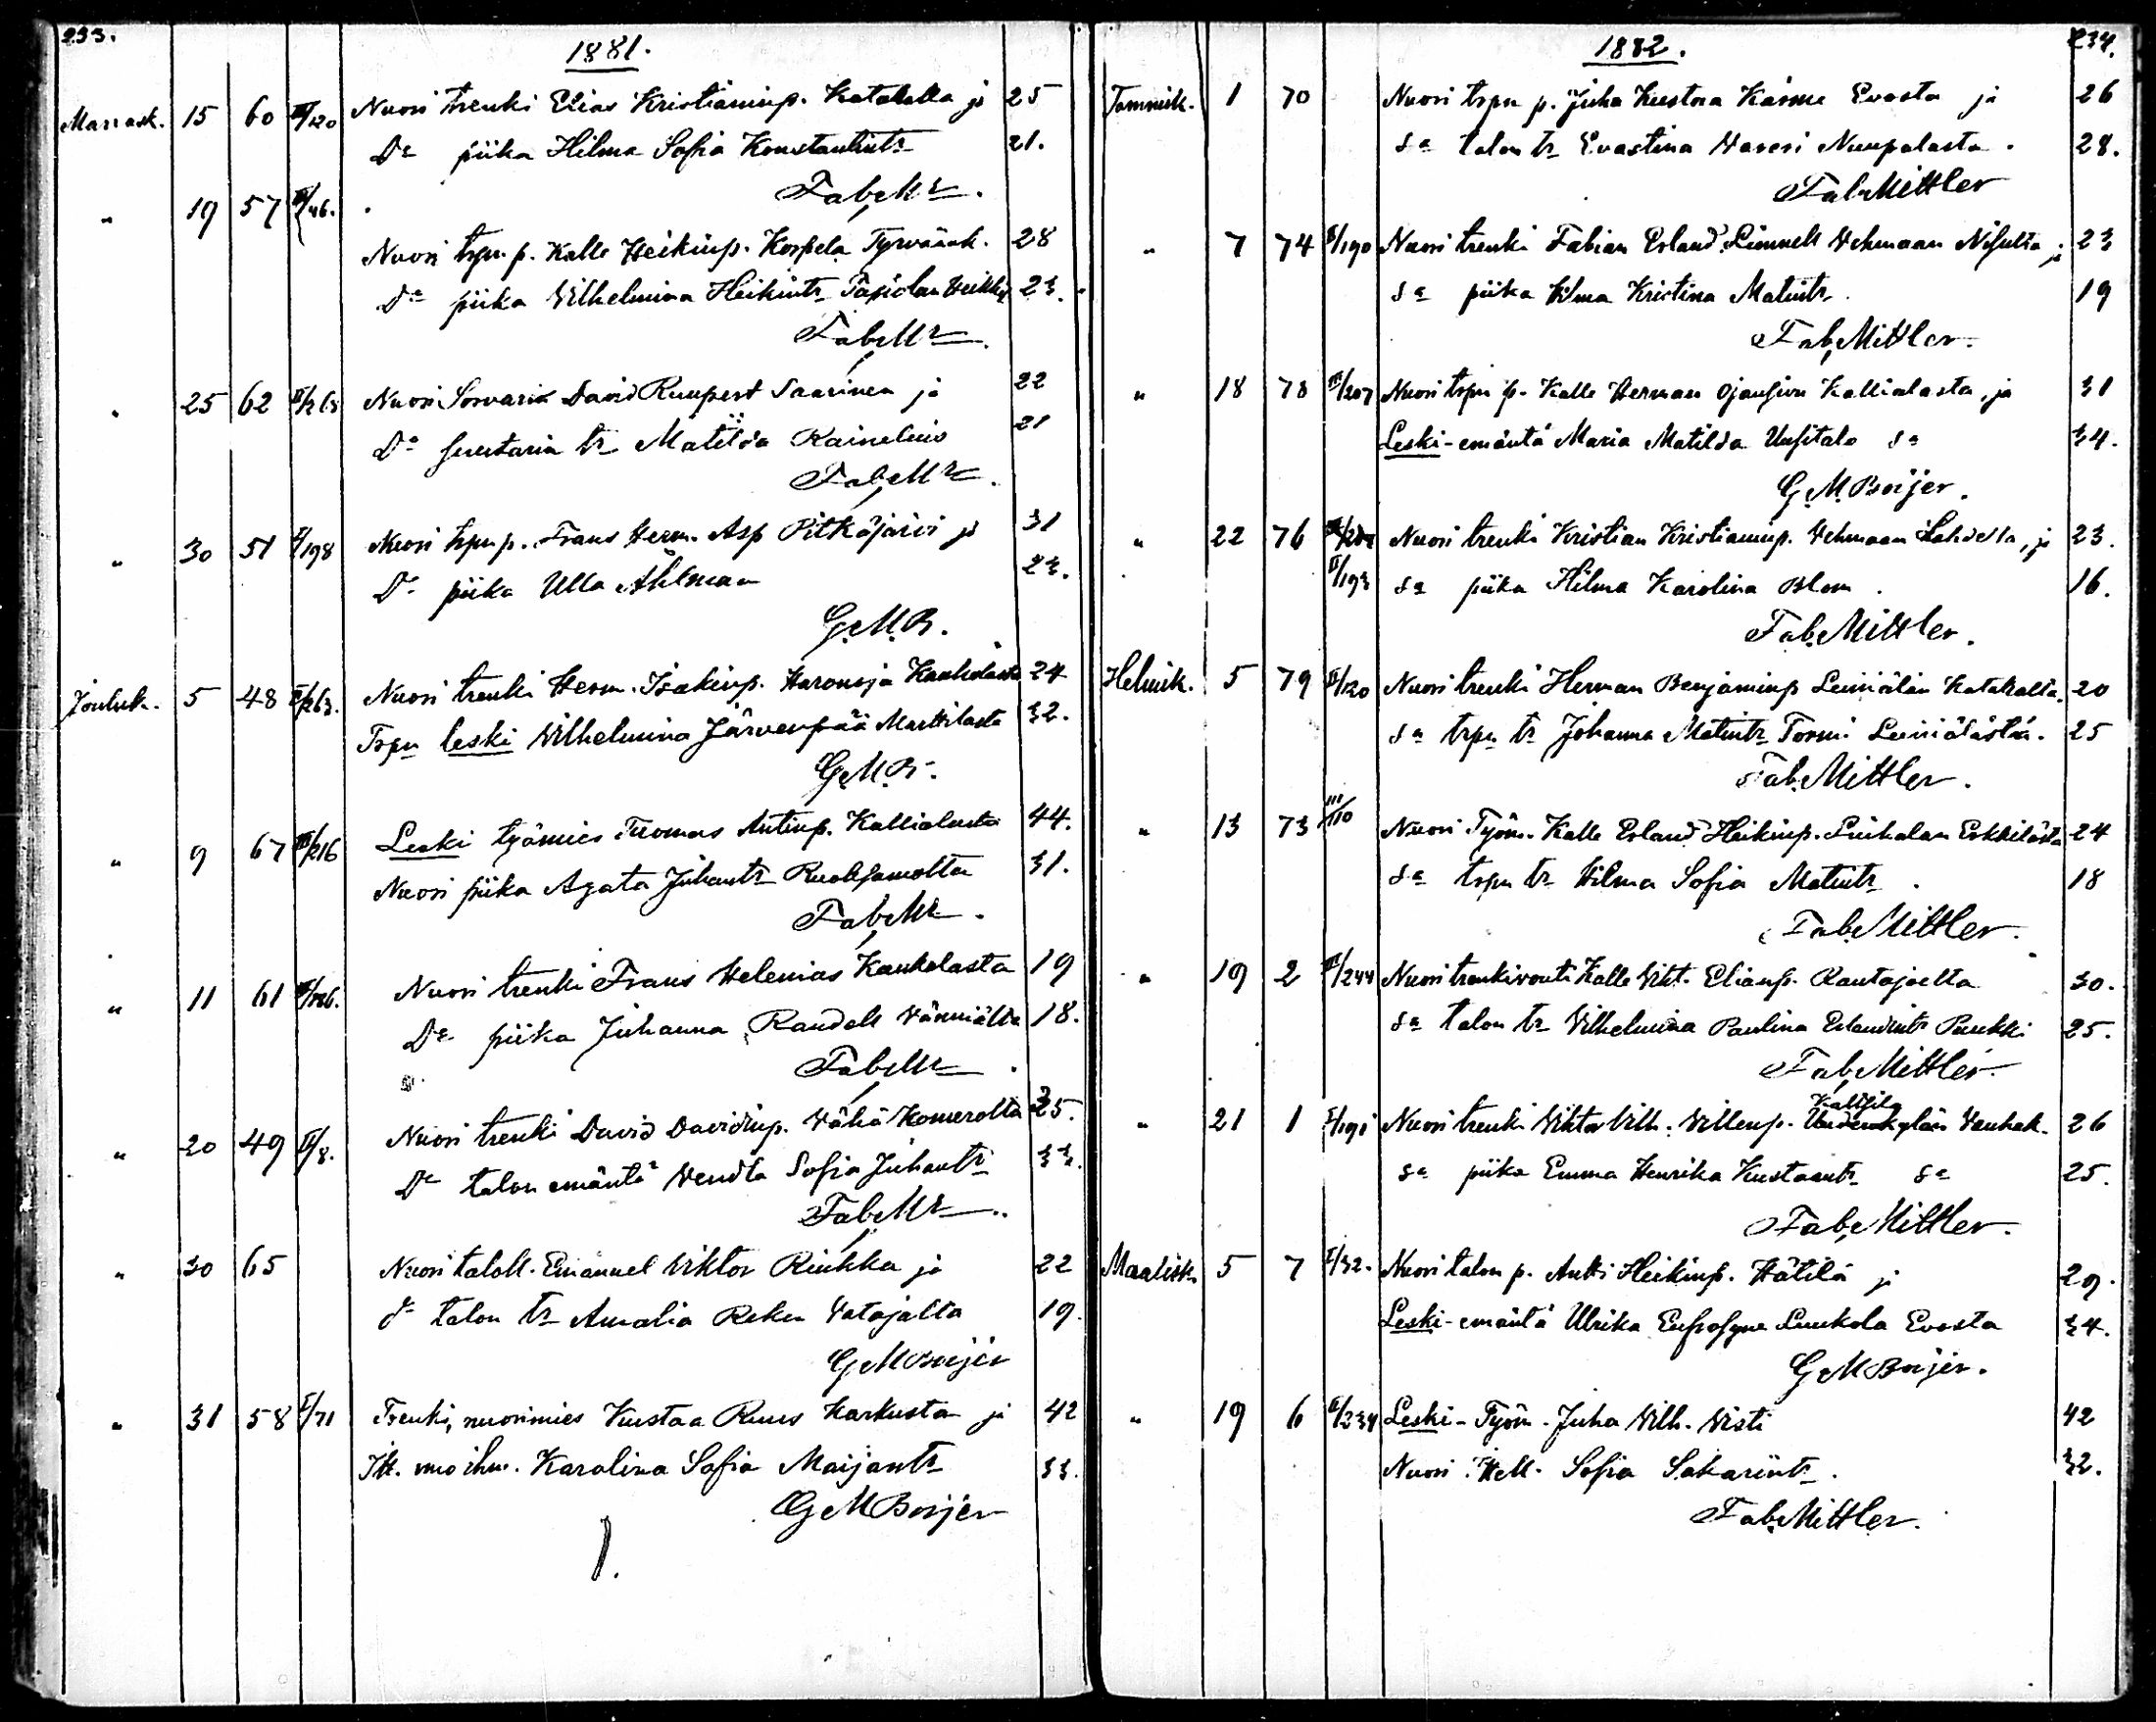 233.
1881.
Marrask. 15 60 III/120 Nuori trenki Elias Kristianinp. Katakalla ja 25
Do piika Hilma Sofia Konstantintr 21.
Fab. Mr.
" 19 57 III/46. Nuori trpn. p. Kalle Heikinp. Korpela Tyrväänk. 28
Do piika Vilhelmina Heikintr 23.
Fab. Mr.
" 25 62 Nuori Sorvarin David Ruupert Saarinen ja 22
Do tr Matilda 21
Fab. Mr.
" 30 51 I/198 Nuori trpn p. Frans Herm. Asp Pitkäjärvi ja 31
Do piika Ulla Åhlman 23.
G.M.B.
Jouluk. 5 48 Nuori trenki Herm. Isakinp. 24
Trpn leski Vilhelmina Järvenpää Marttilasta 32.
G.M.B.
" 9 67 III/216 Leski työmies Tuomas Antinp. Kallialasta 44.
Nuori piika Agata Juhantr 31.
Fab. Mr.
" 11 61 Nuori trenki Frans Helenius Kaukolasta 19
Do piika Juhanna Randell 18.
Fab. Mr.
" 20 49 II/8. Nuori trenki David Davidinp. Vähä Komerolta 25.
Do talon emäntä Vendla Sofia Juhantr 33.
Fab. Mr.
" 30 65 Nuori taloll. Emanuel Viktor Riukka ja 22
do talon tr Amalia Reku Vatajalta 19.
G M Borjer
" 31 58 I/71 Trenki, nuorimies Kustaa Ruus Karkusta ja 42
Itt. Karolina Sofia Maijantr 33.
G M Borjer
234.
1882.
Tammik. 1 70 Nuori trpn p. Juha Kustaa Evosta ja 26
sa talon tr Evastina Nuupalasta. 28.
Fab. Mittler
" 7 74 II/190 Nuori trenki Fabian Erland Limnell Vehmaan ja 23
sa piika Hilma Kristina Matintr. 19
Fab. Mittler.
" 18 78 III/207 Nuori trpn p. Kalle Herman Ojansivu Kallialasta, ja 31
Leski-emäntä Maria Matilda Uusitalo sa 34.
G. M. Borjer.
" 22 76 Nuori trenki Kristian Kristianinp. Vehmaan ja 23.
II/193 sa piika Hilma Karolina Blom. 16.
Fab. Mittler.
Helmik. 5 79 II/120 Nuori trenki Herman Benjaminp Leiniälän Katakalta. 20
sa trpn tr Johanna Matintr Tormi Leiniälästä. 25
Fab. Mittler.
" 13 73 III/110 Nuori Työm. Kalle Erland Heikinp. Liuhalan 24
sa trpn tr Hilma Sofia Matintr. 18
Fab. Mittler.
" 19 2 III/244 Nuori trenkivouti Kalle Viht. Elianp. Rautajoelta 30.
sa talon tr Vilhelmina Paulina Erlandintr Punkki 25.
Fab. Mittler.
" 21 1 I/191 Nuori trenki Viktor Vilh. Villenp. Vanhak. 26
sa piika Emma Henrika Kustaantr sa 25.
Fab. Mittler.
Maalisk. 5 7 I/32. Nuori talon p. Antti Heikinp. Hätilä ja 29.
Leski-emäntä Ulrika Eufrosyne Luukola Evosta 34.
G M Borjer.
" 19 6 II/234 Leski-Työm. Juha Vilh. Visti 42
Nuori Itell. Sofia Sakariintr. 32.
Fab. Mittler.